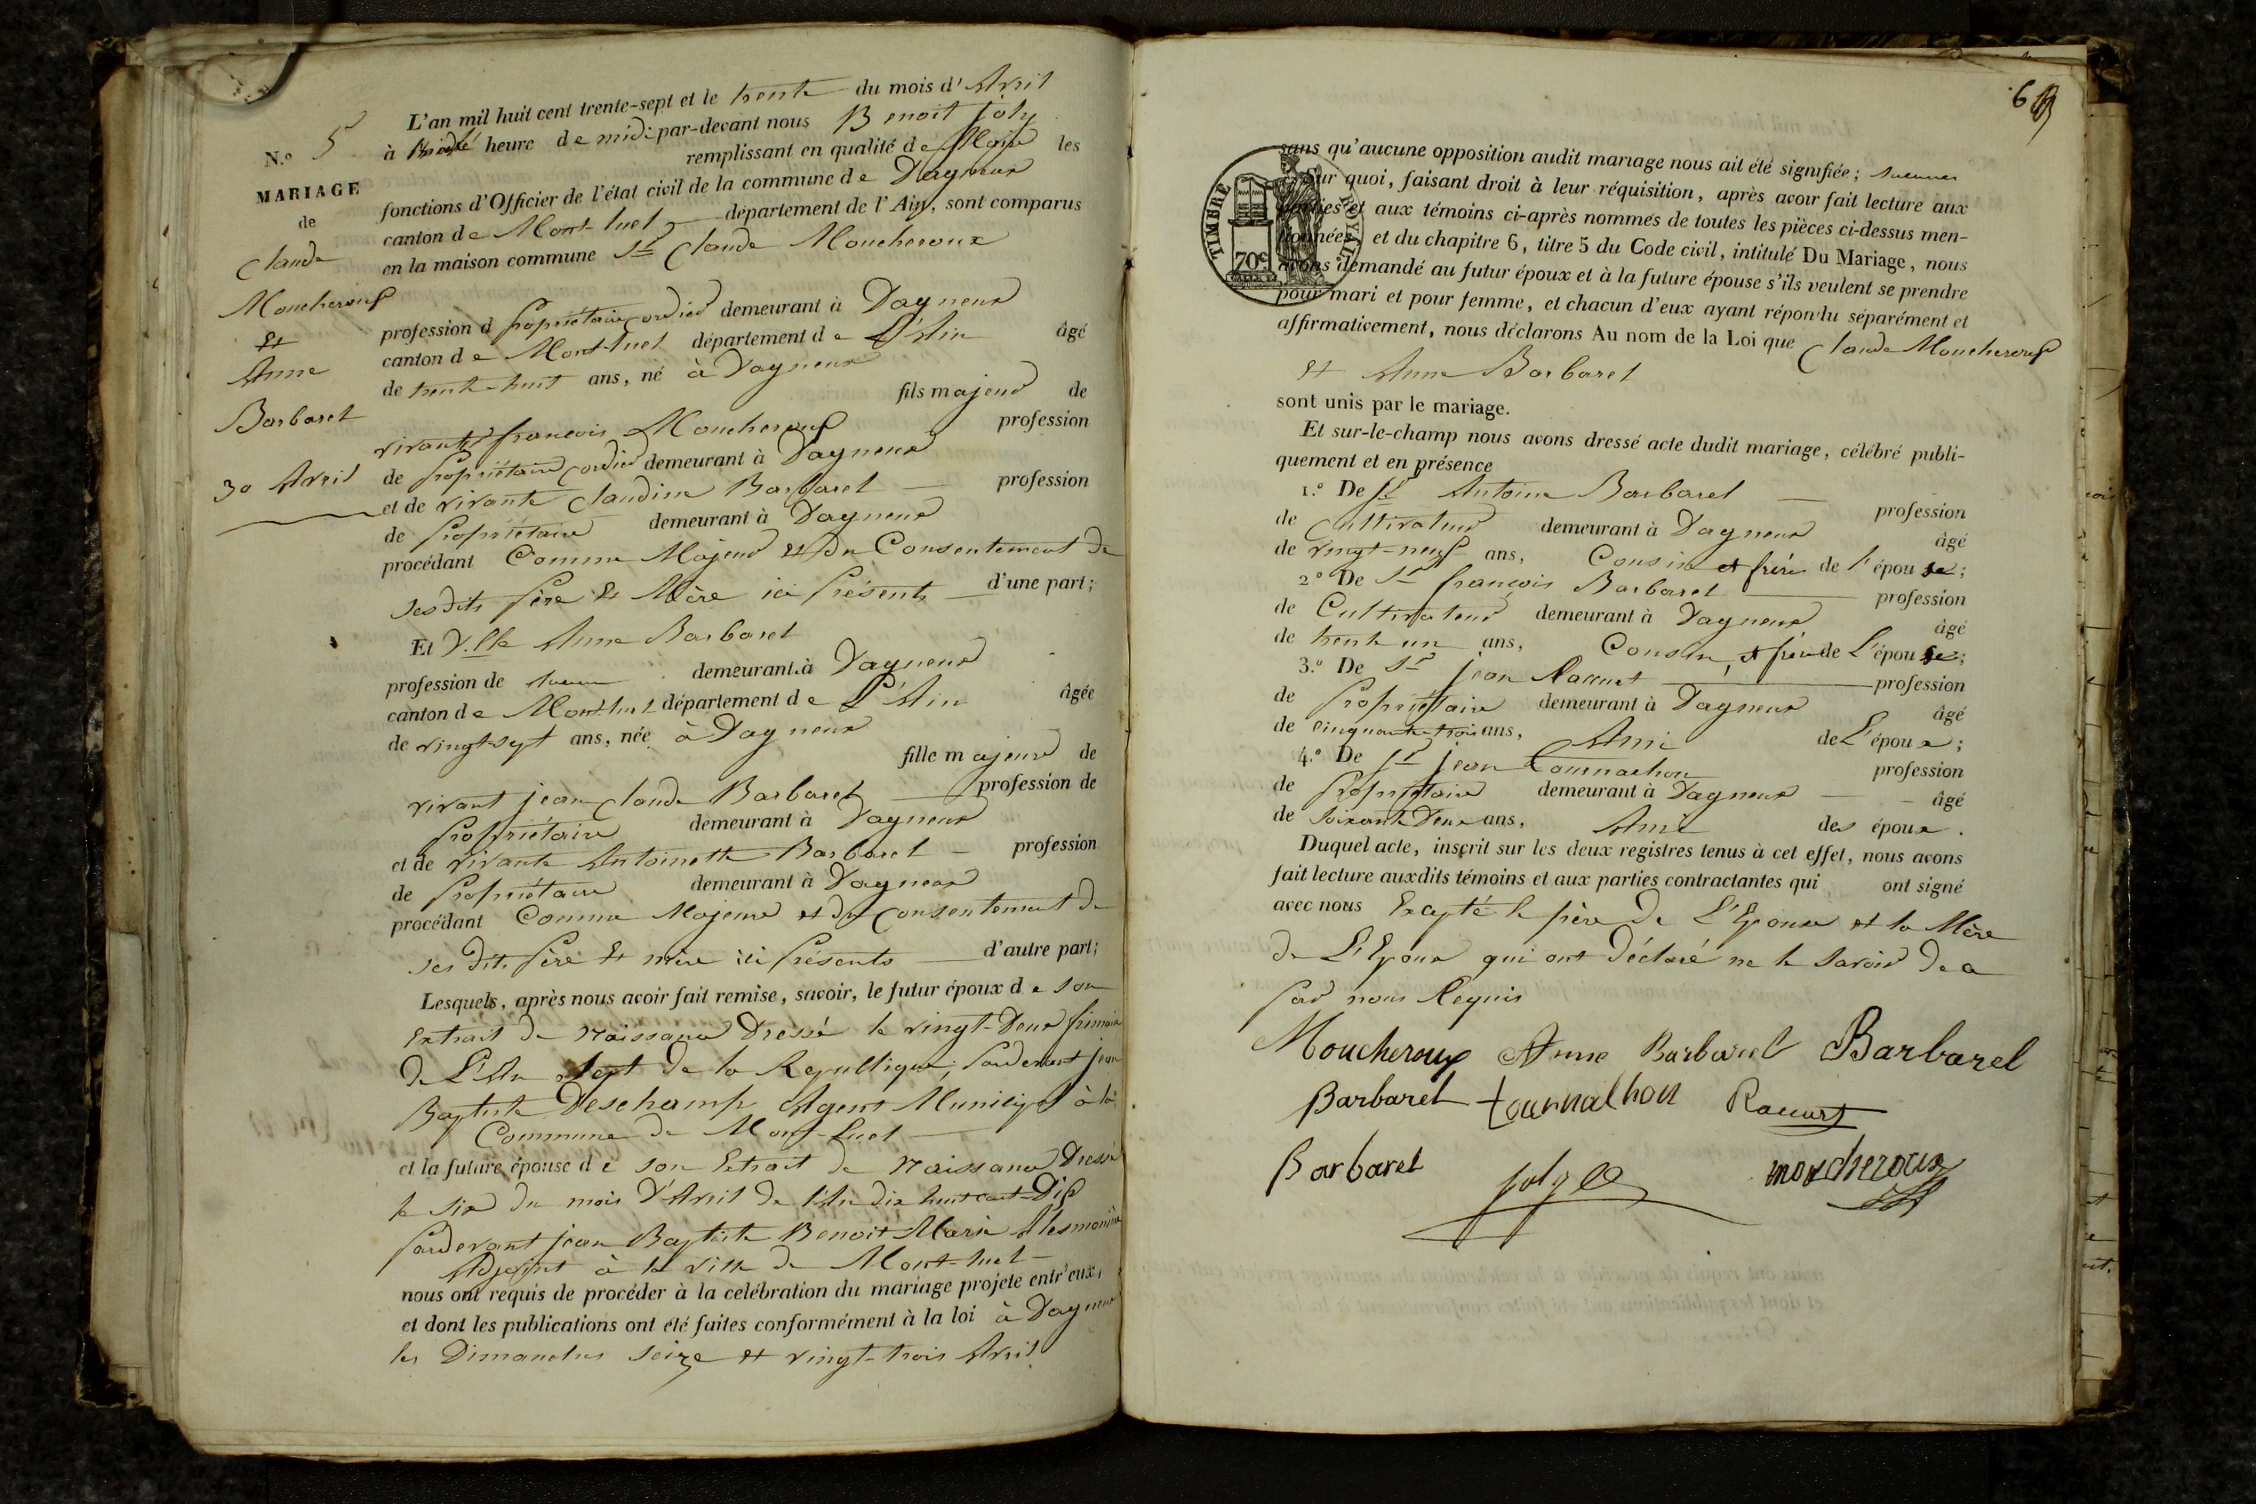 N.o 5
MARIAGE
de
Claude
Moucheroux
Et
Anne
Barbaret
30 Avril
L'an mil huit cent trente-sept et le trente du mois d'Avril
à heure de midi par-devant nous Benoit Joly
remplissant en qualité de Maire les
fonctions d'Officier de l'état civil de la commune de Dagneux
canton de Mont-luel département de l'Ain, sont comparus
en la maison commune Sr Claude Moucheroux
profession d propriétaire cordier demeurant à Dagneux
canton de Mont-luel département de L'Ain âgé
de trente-huit ans, né à Dagneux
fils majeur de
vivants françois Moucheroux profession
de propriétaire cordier demeurant à Dagneux
et de vivante Claudine Barbaret profession
de propriétaire demeurant à Dagneux
procédant Comme Majeur et du Consentement de
ses dits père et Mère ici présents d'une part;
Et D.lle Anne Barbaret
profession de demeurant à Dagneux
canton de Mont-luel département de L'Ain âgée
de vingt-sept ans, née à Dagneux
fille majeure de
vivant jean Claude Barbaret profession de
propriétaire demeurant à Dagneux
et de vivante Antoinette Barbaret profession
de propriétaire demeurant à Dagneux
procédant Comme Majeure et du Consentement de
ses dits père et mère ici présents d'autre part;
Lesquels, après nous avoir fait remise, savoir, le futur époux de son
Extrait de Naissance Dressé le vingt-Deux frimaire
de L'An sept de la République, pardevant jean
Baptiste Deschamp Agent Municipal à la
Commune de Mont-luel
et la future épouse de son Extrait de Naissance Dressé
le six du mois D'Avril de l'An dix huit cent-Dix
pardevant jean Baptiste Benoit Marie
Adjoint à la ville de Mont-luel
nous ont requis de procéder à la celébration du mariage projeté entr'eux,
et dont les publications ont été faites conformément à la loi à Dagneux
les Dimanches seize et vingt-trois Avril
6
TIMBRE ROYAL
70c
sans qu'aucune opposition audit mariage nous ait été signifiée; aucunes
Sur quoi, faisant droit à leur réquisition, après avoir fait lecture aux
parties et aux témoins ci-après nommés de toutes les pièces ci-dessus men-
tionnées, et du chapitre 6, titre 5 du Code civil, intitulé Du Mariage, nous
avons demandé au futur époux et à la future épouse s'ils veulent se prendre
pour mari et pour femme, et chacun d'eux ayant répondu séparément et
affirmativement, nous déclarons Au nom de la Loi que Claude Moucheroux
et Anne Barbaret
sont unis par le mariage.
Et sur-le-champ nous avons dressé acte dudit mariage, célébré publi-
quement et en présence
1.o De Sr Antoine Barbaret profession
de Cultivateur demeurant à Dagneux âgé
de vingt-neuf ans, Cousin et frère de l'épouse;
2.o De Sr françois Barbaret profession
de Cultivateur demeurant à Dagneux âgé
de trente un ans, Cousin et frère de L'épouse;
3.o De Sr jean profession
de propriétaire demeurant à Dagneux âgé
de cinquante-trois ans, Ami de L'époux;
4.o De Sr jean Tournachon profession
de propriétaire demeurant à Dagneux âgé
de soixante Deux ans, Ami des époux.
Duquel acte, inscrit sur les deux registres tenus à cet effet, nous avons
fait lecture auxdits témoins et aux parties contractantes qui ont signé
avec nous Excepté le père de L'Epouse et la Mère
de L'Epoux qui ont déclaré ne le savoir de ce
par nous Requis
Moucheroux Anne Barbaret Barbarel
Barbaret tournachon
Barbaret joly moucheroux